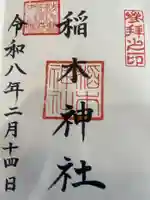 登拝之印
稲木神社
令和八年二月十四日